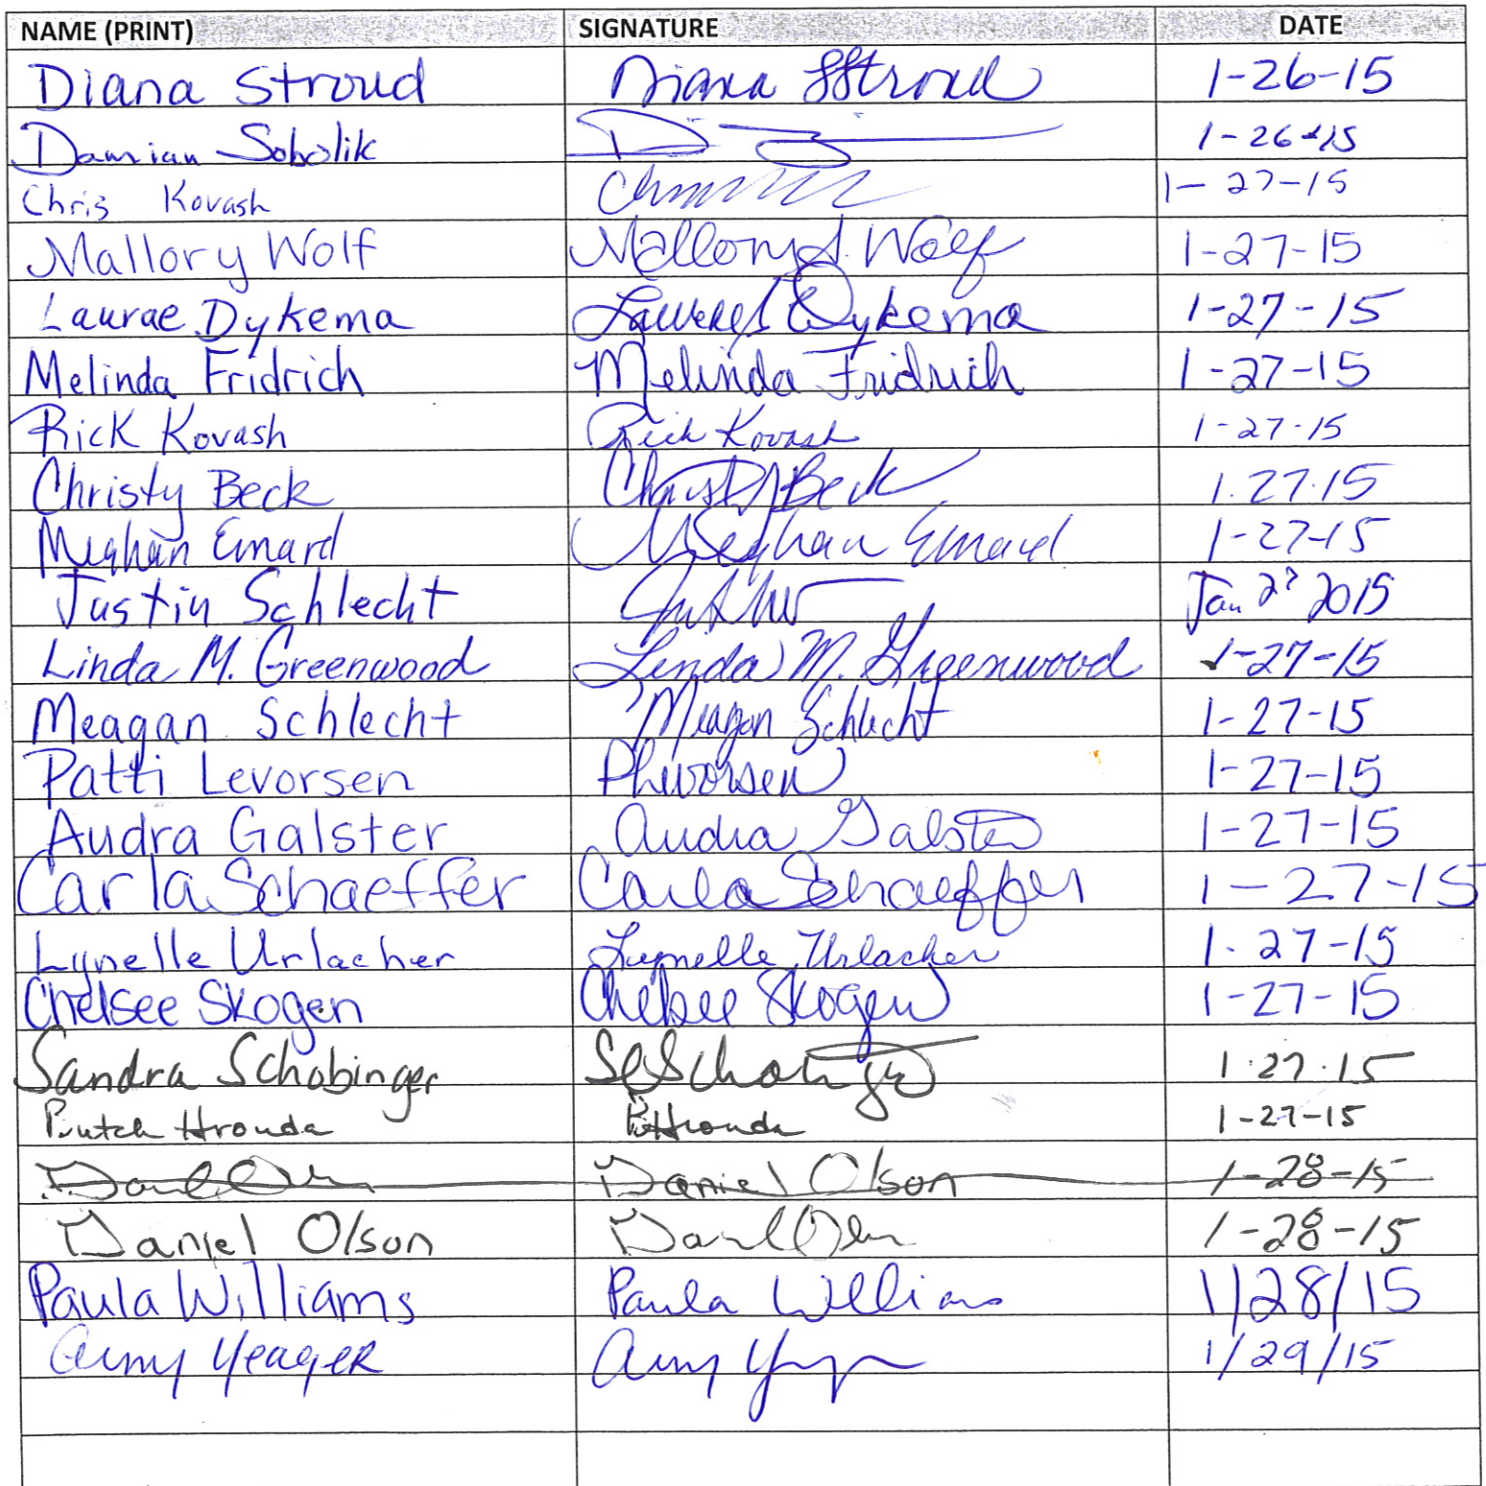 NAME (PRINT) SIGNATURE DATE
Diana Stroud Diana Stroud 1-26-15
Damian Sobolik 1-26-15
Chris Kovash 1-27-15
Mallory Wolf Mallory J. Wolf 1-27-15
Laurae Dykema Laurae Dykema 1-27-15
Melinda Fridrich Melinda Fridrich 1-27-15
Rick Kovash Rick Kovash 1-27-15
Christy Beck Christy Beck 1.27.15
Meghan Emard Meghan Emard 1-27-15
Justin Schlecht Jan 27 2015
Linda M. Greenwood Linda M. Greenwood 1-27-15
Meagan Schlecht Meagan Schlecht 1-27-15
Patti Levorsen PLevorsen 1-27-15
Audra Galster Audra Galster 1-27-15
Carla Schaeffer Carla Schaeffer 1-27-15
Lynelle Urlacher Lynelle Urlacher 1-27-15
Chelsee Skogen Chelsee Skogen 1-27-15
Sandra Schobinger 1.27.15
Butch Hronda BHronda 1-27-15
Daniel Olson 1-28-15
Daniel Olson 1-28-15
Paula Williams Paula Williams 1/28/15
Amy Yeager Amy 1/29/15